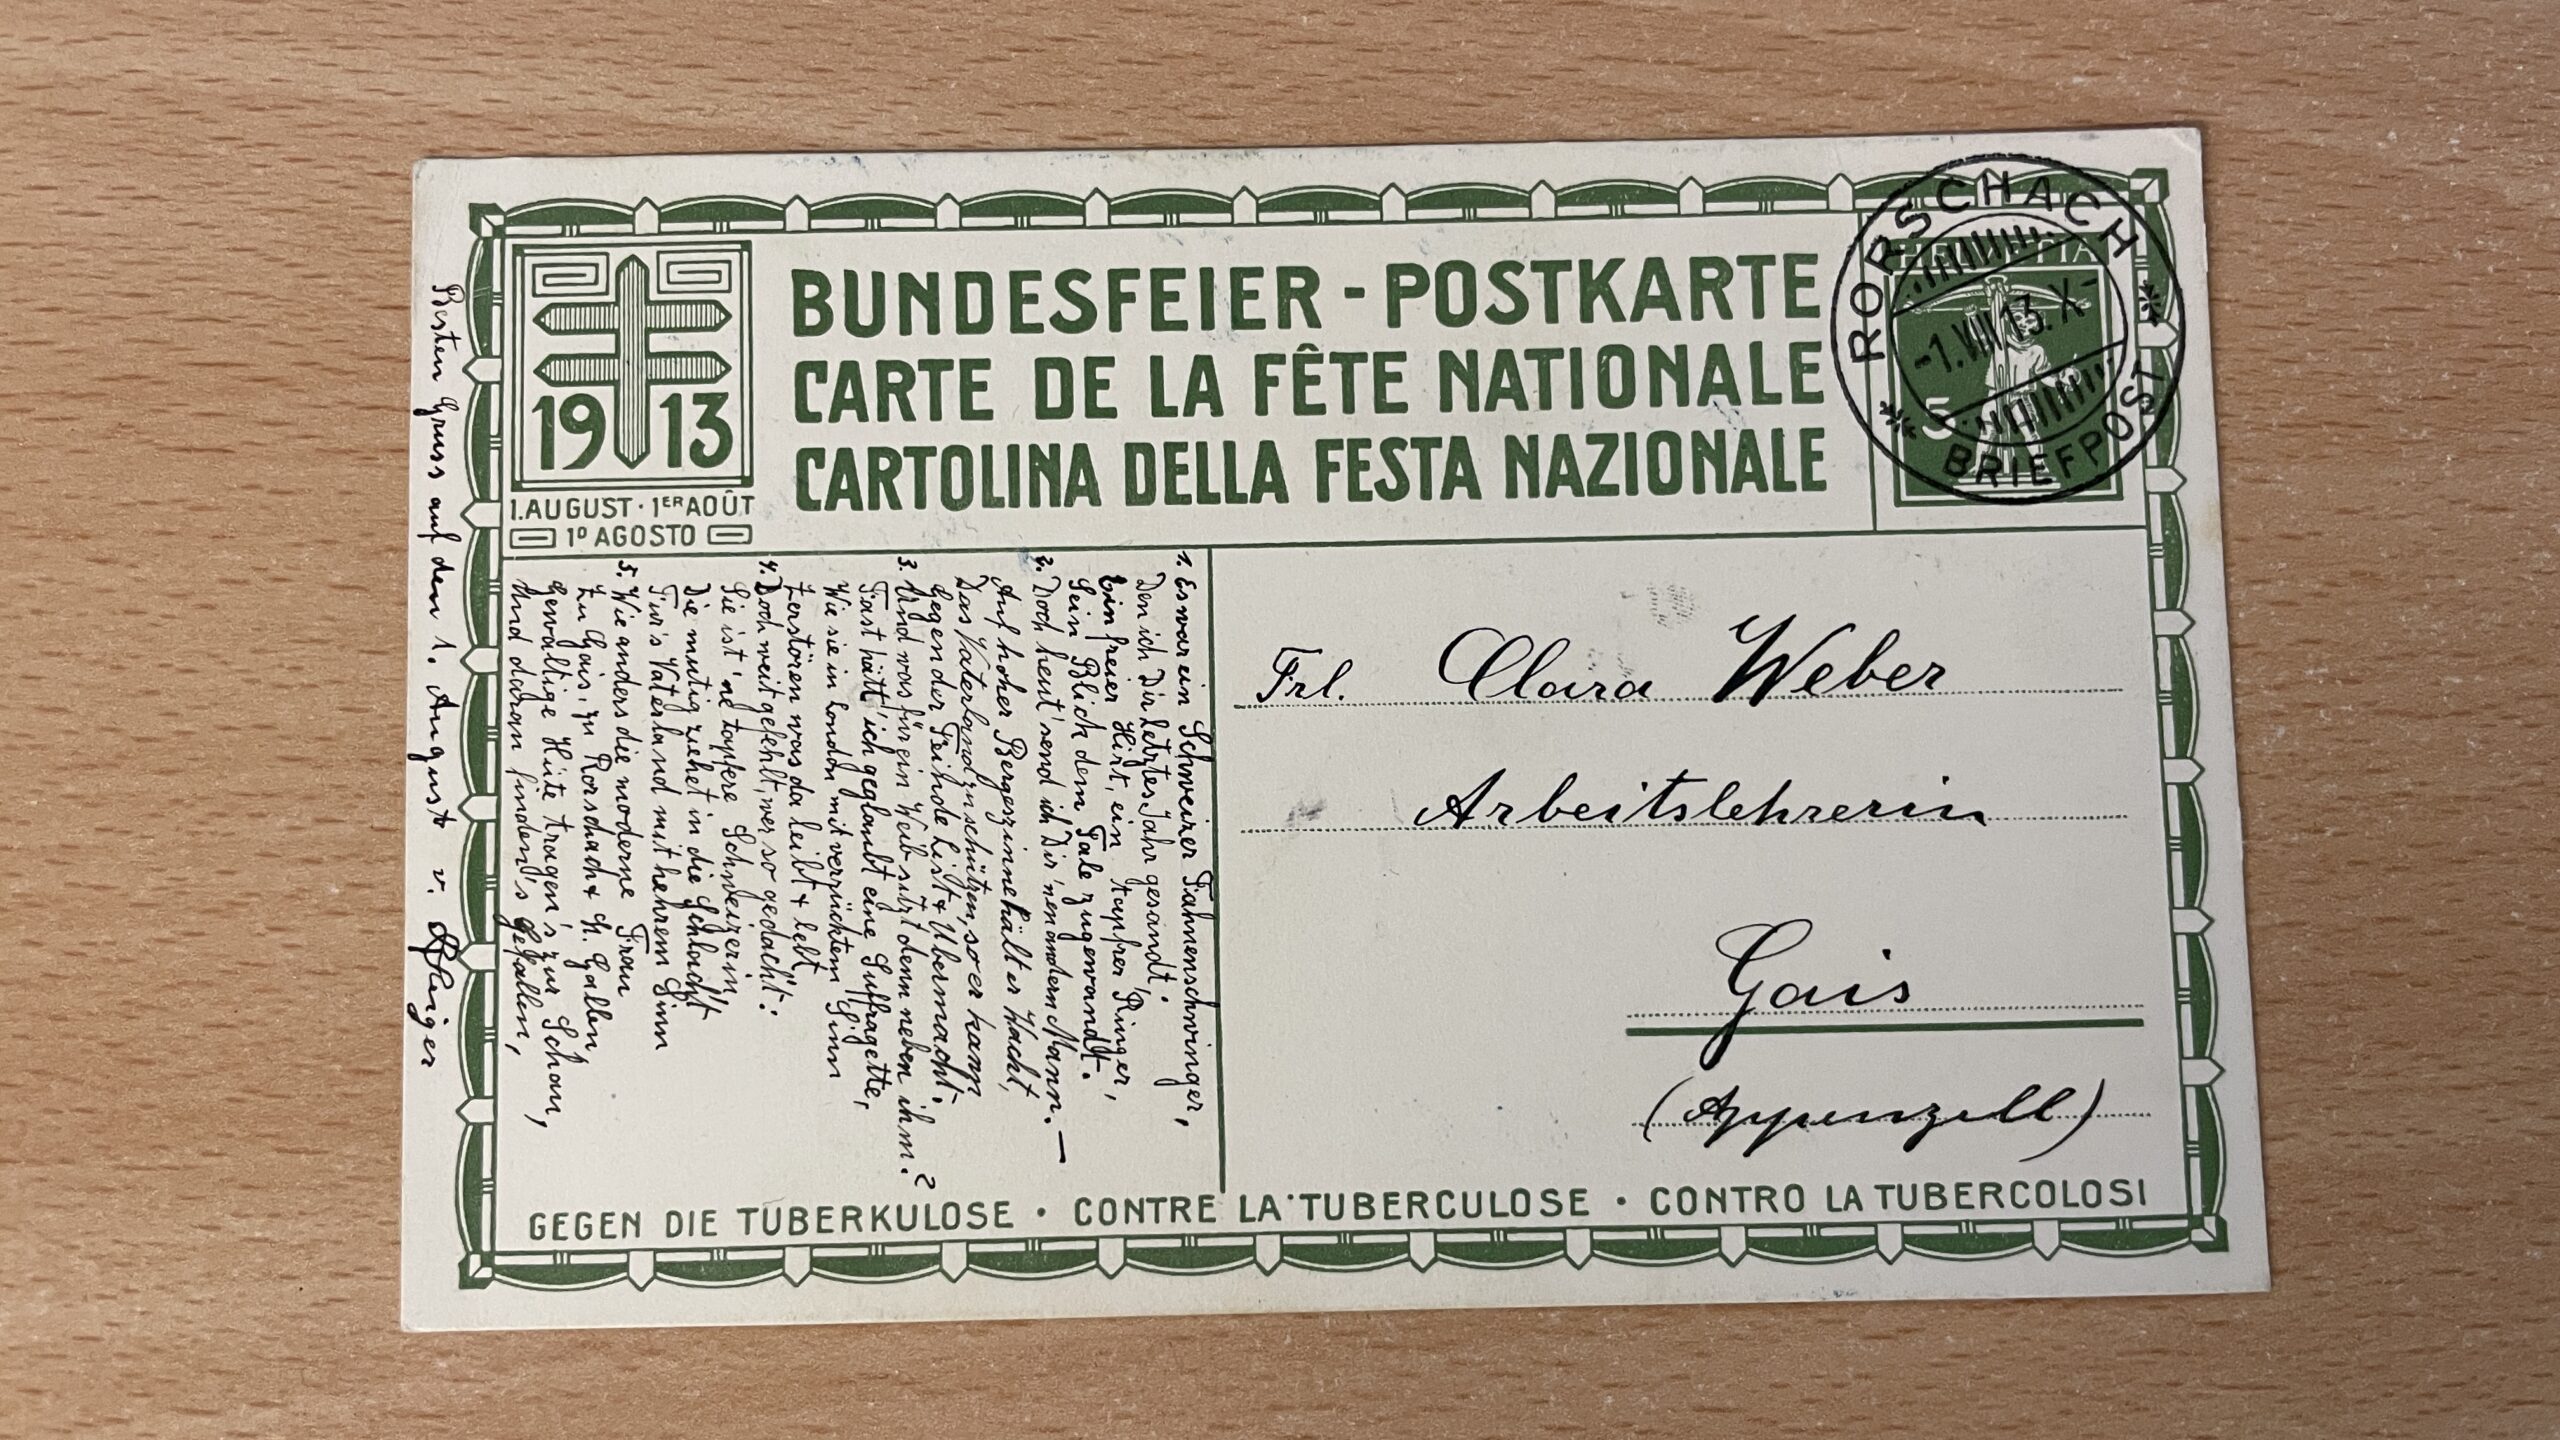 1913
1. AUGUST · 1ER AOÛT
1º AGOSTO
BUNDESFEIER - POSTKARTE
CARTE DE LA FÊTE NATIONALE
CARTOLINA DELLA FESTA NAZIONALE
HELVETIA
5
RORSCHACH
-1.VIII 13. X-
BRIEFPOST
1. Es war ein Schweizer Fahnenschwinger,
Den ich Dir letztes Jahr gesandt,
Ein freier Hirt, ein tapfrer Ringer,
Sein Blick dem Tale zugewandt.
2. Doch heut' send ich Dir 'nen andern Mann. —
Auf hoher Bergeszinne hält er Wacht,
Das Vaterland zu schützen, so er kann
Gegen der Feinde List & Übermacht.
3. Und was für ein Weib sitzt denn neben ihm?
Fast hätt' ich geglaubt eine Suffragette,
Wie sie in London mit verrücktem Sinn
Zerstören was da leibt & lebt
4. Doch weit gefehlt, wer so gedacht:
Sie ist 'ne tapfere Schweizerin
Die mutig ziehet in die Schlacht
Für's Vaterland mit hehrem Sinn
5. Wie anders die moderne Frau
Zu Gais, zu Rorschach & St. Gallen,
Gewaltige Hüte tragen's zur Schau,
Und daran finden's Gefallen,
Besten Gruss auf den 1. August v.
Frl. Clara Weber
Arbeitslehrerin
Gais
(Appenzell)
GEGEN DIE TUBERKULOSE · CONTRE LA TUBERCULOSE · CONTRO LA TUBERCOLOSI